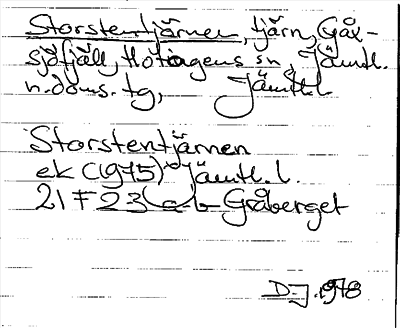 Storstentjärnen, tjärn, Gåx-
sjöfjäll, Hotagens sn, Jämtl.
n. doms. tg, Jämtl.l
Storstentjärnen
ek (1975) Jämtl. l.
21 F 23 a-b Gråberget
D-J. 1978